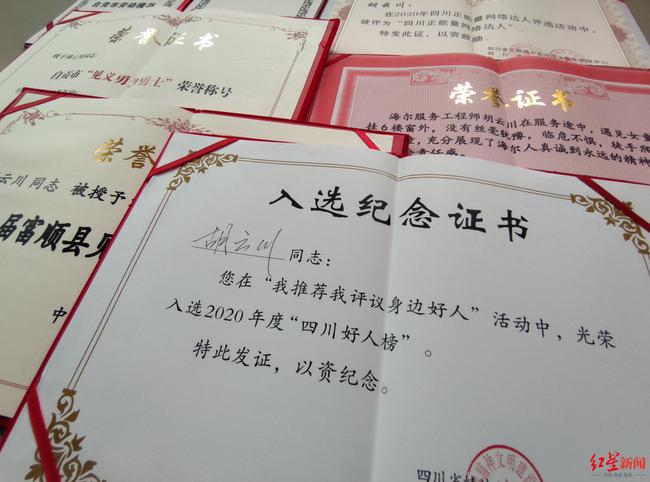 自贡市劳动模范
胡云川：
在2020年四川正能量网络达人评选活动中，
被评为“四川正能量网络达人”
特发此证，以资鼓励。
荣誉证书
自贡市“见义勇为勇士”荣誉称号
荣誉证书
海尔服务工程师胡云川在服务途中，遇见女童
挂6楼窗外，没有丝毫犹豫，临危不惧，徒手爬
充分展现了海尔人真诚到永远的精神
荣誉
云川 同志 被授予
届富顺县见
入选纪念证书
胡云川 同志：
您在“我推荐我评议身边好人”活动中，光荣
入选2020年度“四川好人榜”。
特此发证，以资纪念。
四川省精
神文明建设
红星新闻